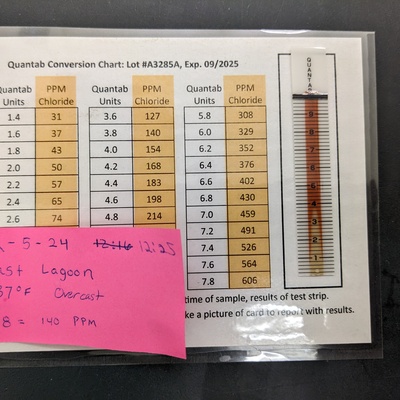 Quantab Conversion Chart: Lot #A3285A, Exp. 09/2025
Quantab Units PPM Chloride Quantab Units PPM Chloride Quantab Units PPM Chloride
1.4 31 3.6 127 5.8 308
1.6 37 3.8 140 6.0 329
1.8 43 4.0 154 6.2 352
2.0 50 4.2 168 6.4 376
2.2 57 4.4 183 6.6 402
2.4 65 4.6 198 6.8 430
2.6 74 4.8 214 7.0 459
7.2 491
7.4 526
7.6 564
7.8 606
QUANTAB
9
8
7
6
5
4
3
2
1
-5-24 12:16 12:25
Lagoon
37°F Overcast
8 = 140 PPM
time of sample, results of test strip.
a picture of card to report with results.